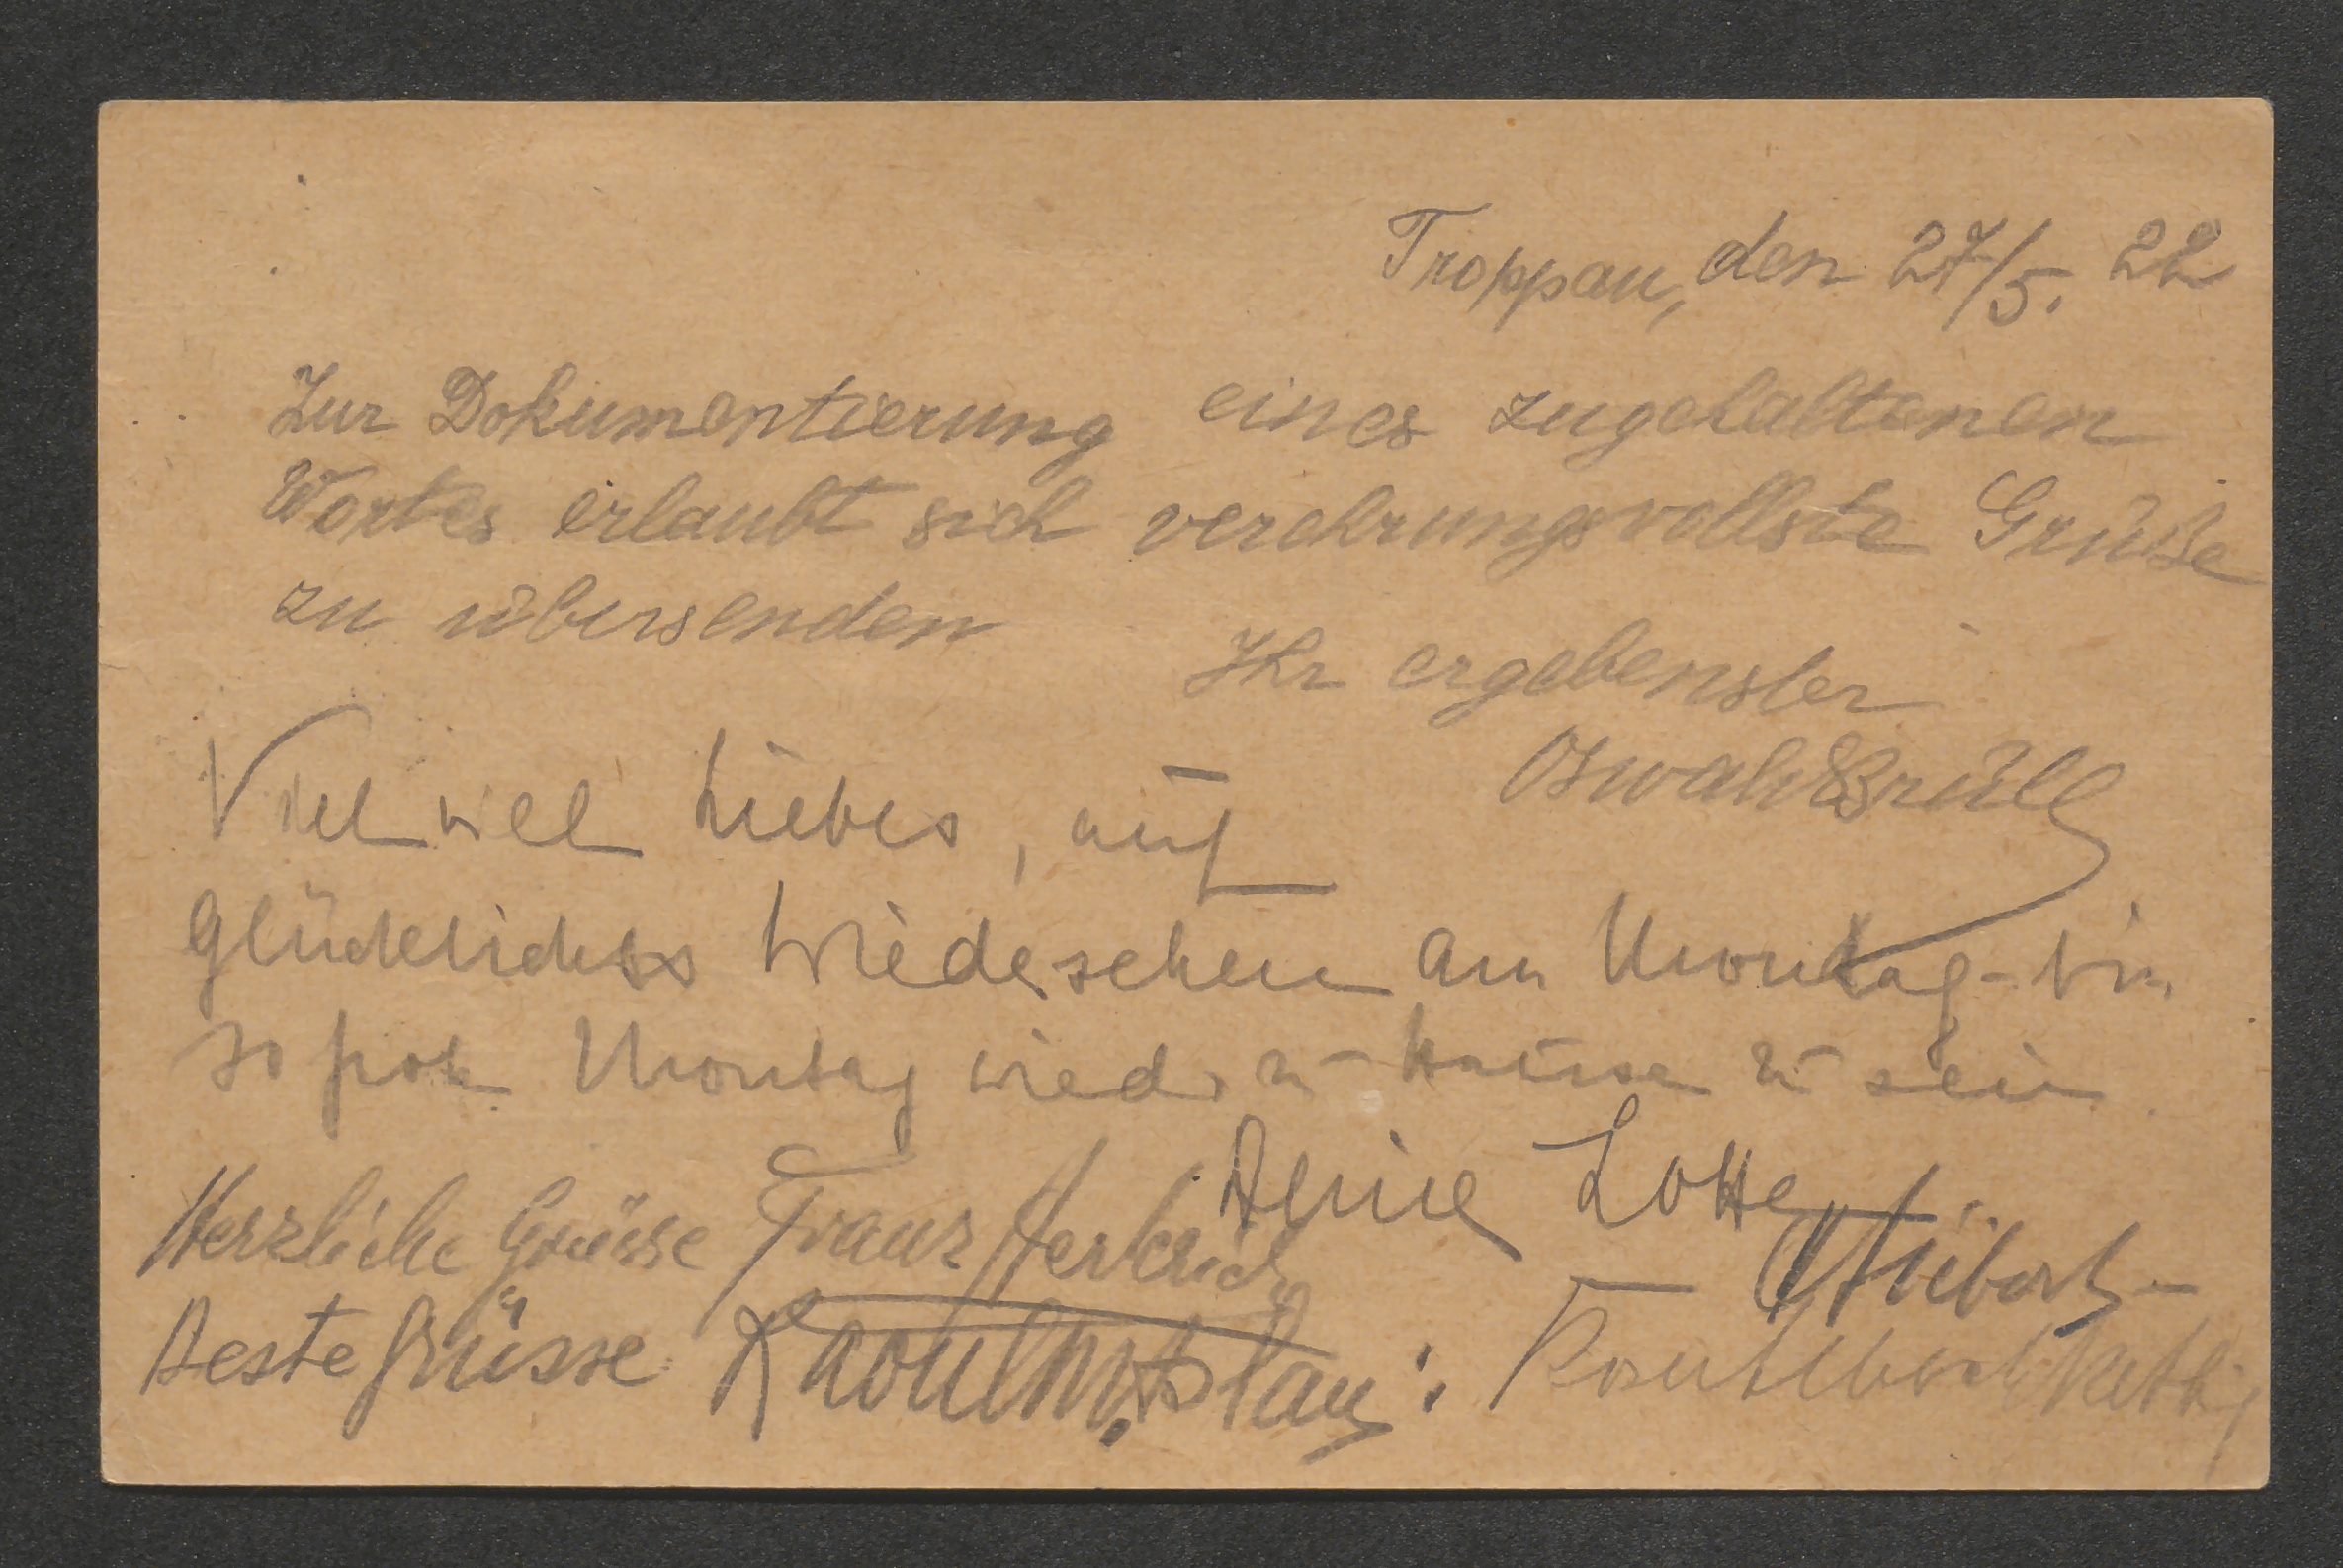 Troppau, den 27/5. 22
Zur Dokumentierung eines zugehaltenen
Wortes erlaubt sich verehrungsvollste Grüße
zu übersenden
Ihr ergebenster
Oswald Brüll
Viel viel Liebes, auf
glückliches Wiedersehen am Montag - bin
so froh Montag wieder zu Hause zu sein.
Deine Lotte
Herzliche Grüsse Franz Herterich
Beste Grüsse Raoul